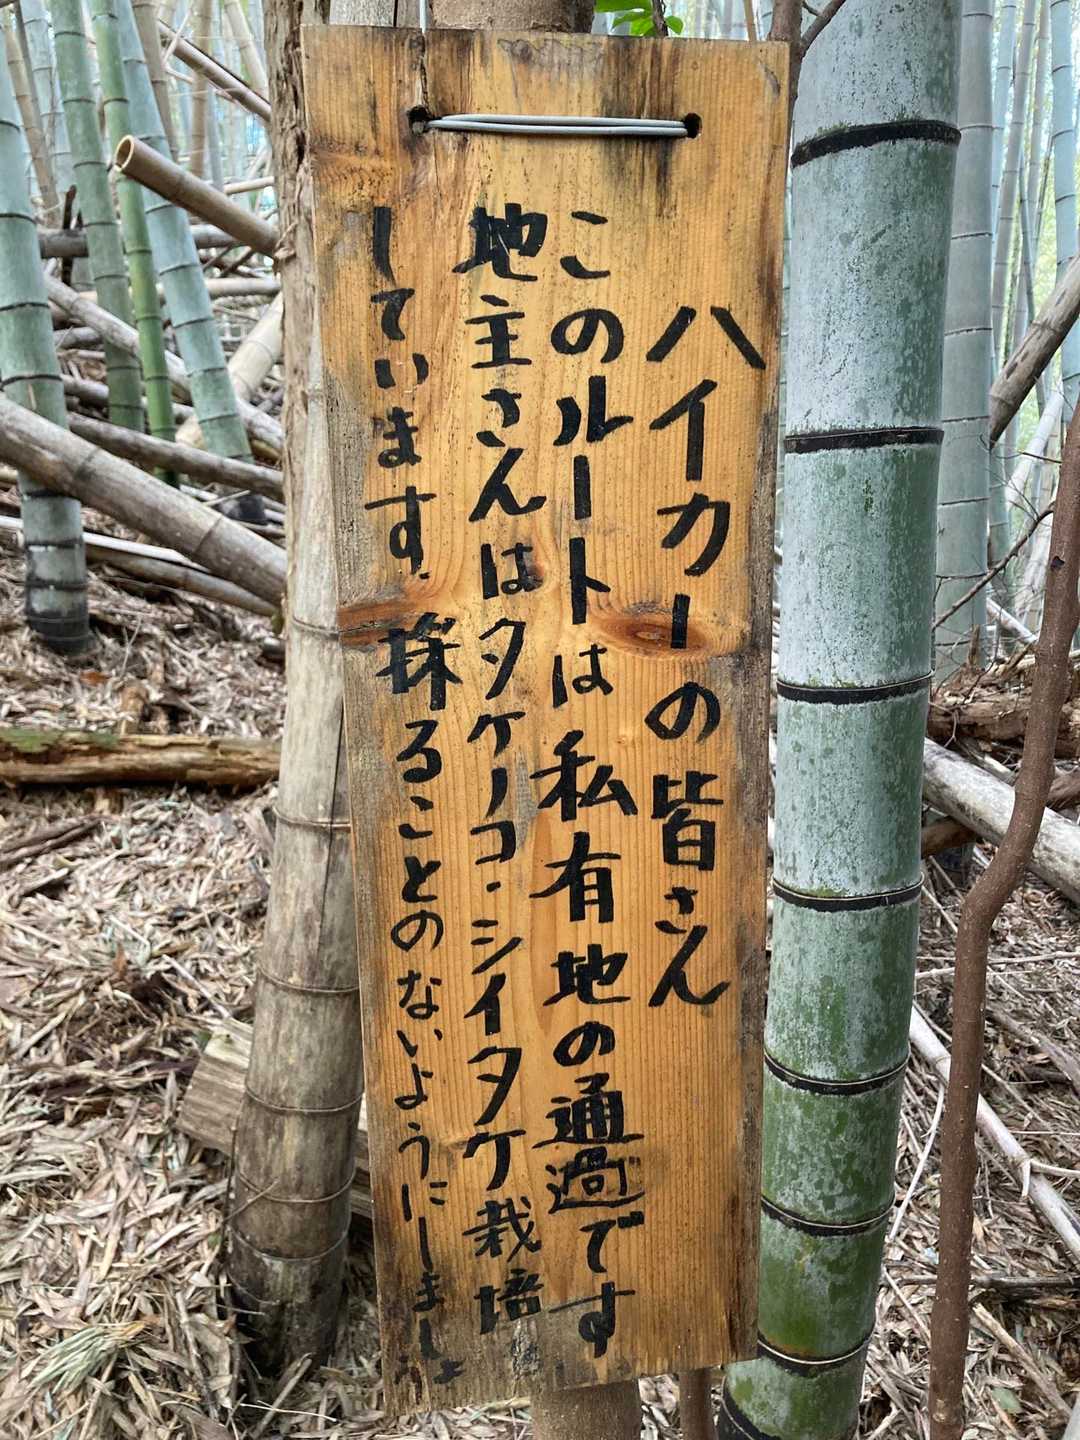 ハイカーの皆さん
このルートは私有地の通過です
地主さんはタケノコ・シイタケ栽培
しています。採ることのないようにしましょう